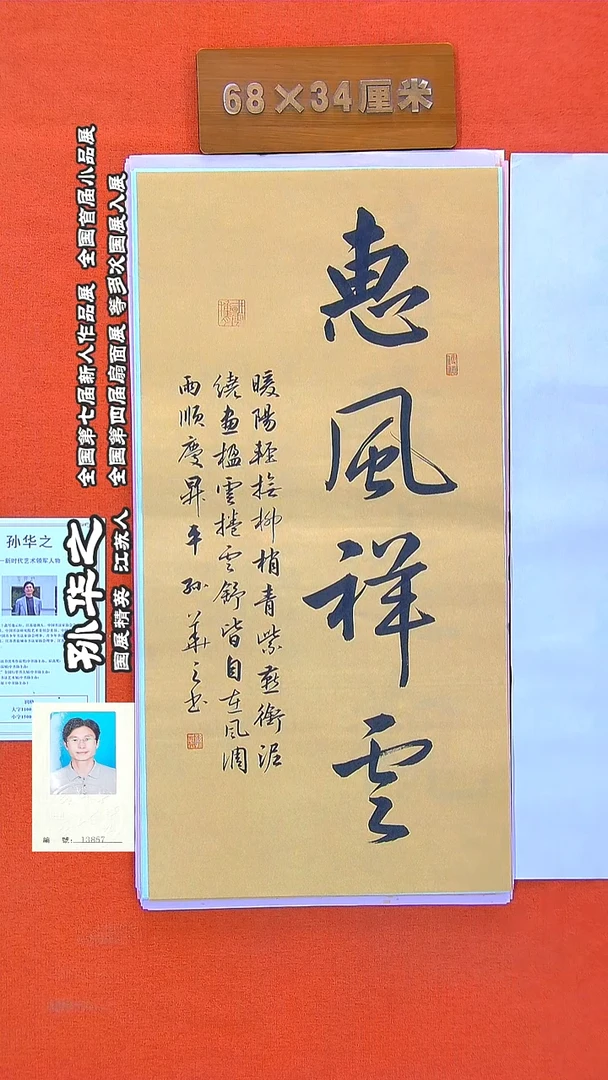 68×34厘米
惠風祥雲
暖陽輕捻柳梢青紫燕銜泥
繞畫楹雲捲雲舒皆自在風調
雨順慶昇平 孙華之书
全国第七届新人作品展 全国首届小品展
全国第四届扇面展 等多次国展入展
孙华之
国展精英 江苏人
孙华之
新时代艺术领军人物
編 號: 13887